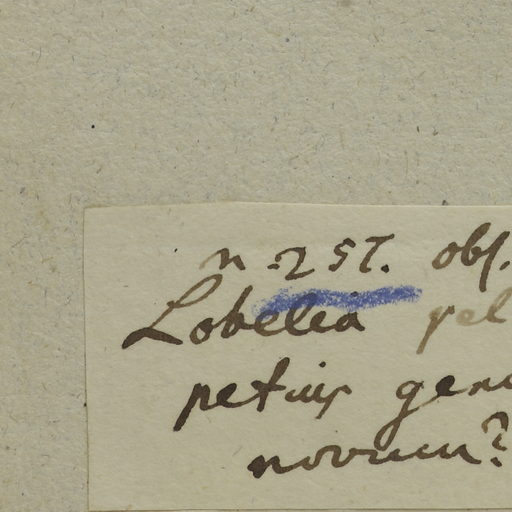 n. 257. obs.
Lobelia vel
petius gen
novum?